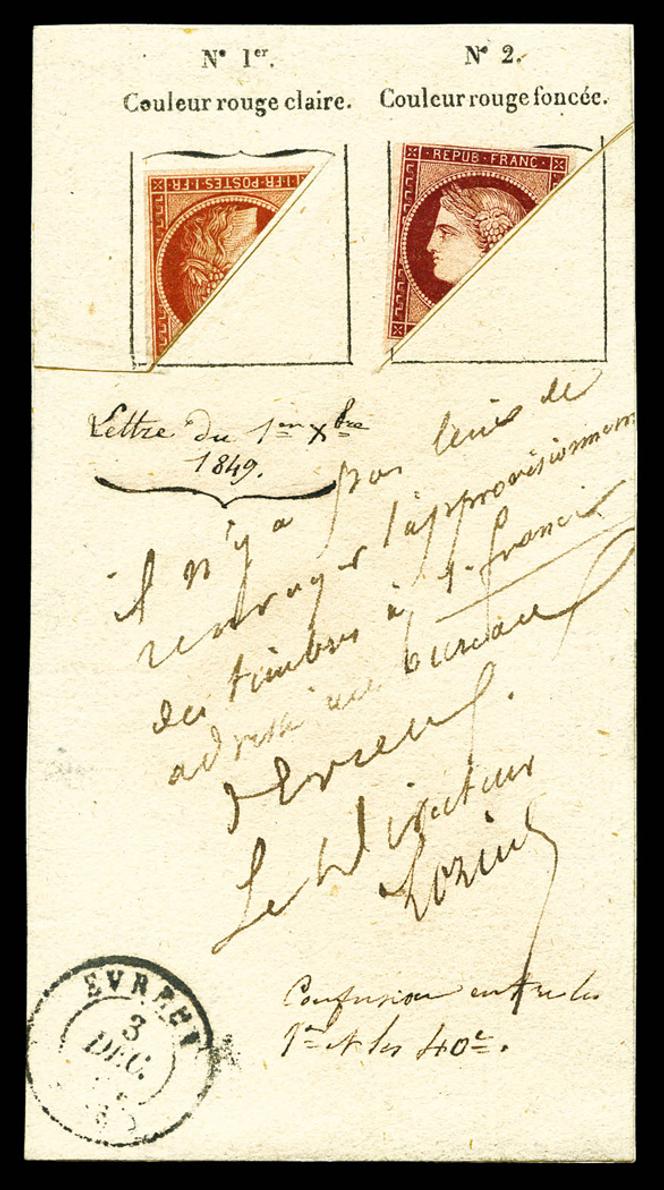 N° 1er.
Couleur rouge claire.
N° 2.
Couleur rouge foncée.
1·FR·POSTES·1·FR
·REPUB·FRANC·
Lettre du 1er Xbre
1849.
il n'y a pas lieu de
renvoyer l'approvisionnem
des timbres à 1 franc
adressé au bureau
d'Evreux.
Le Directeur
EVREUX
3
DEC.
Confusion entre les
1f et les 40c.